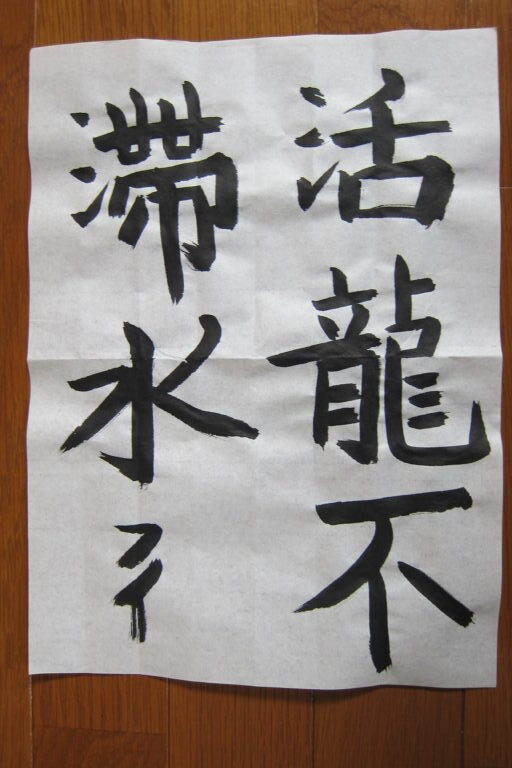 活龍不
滞水彳